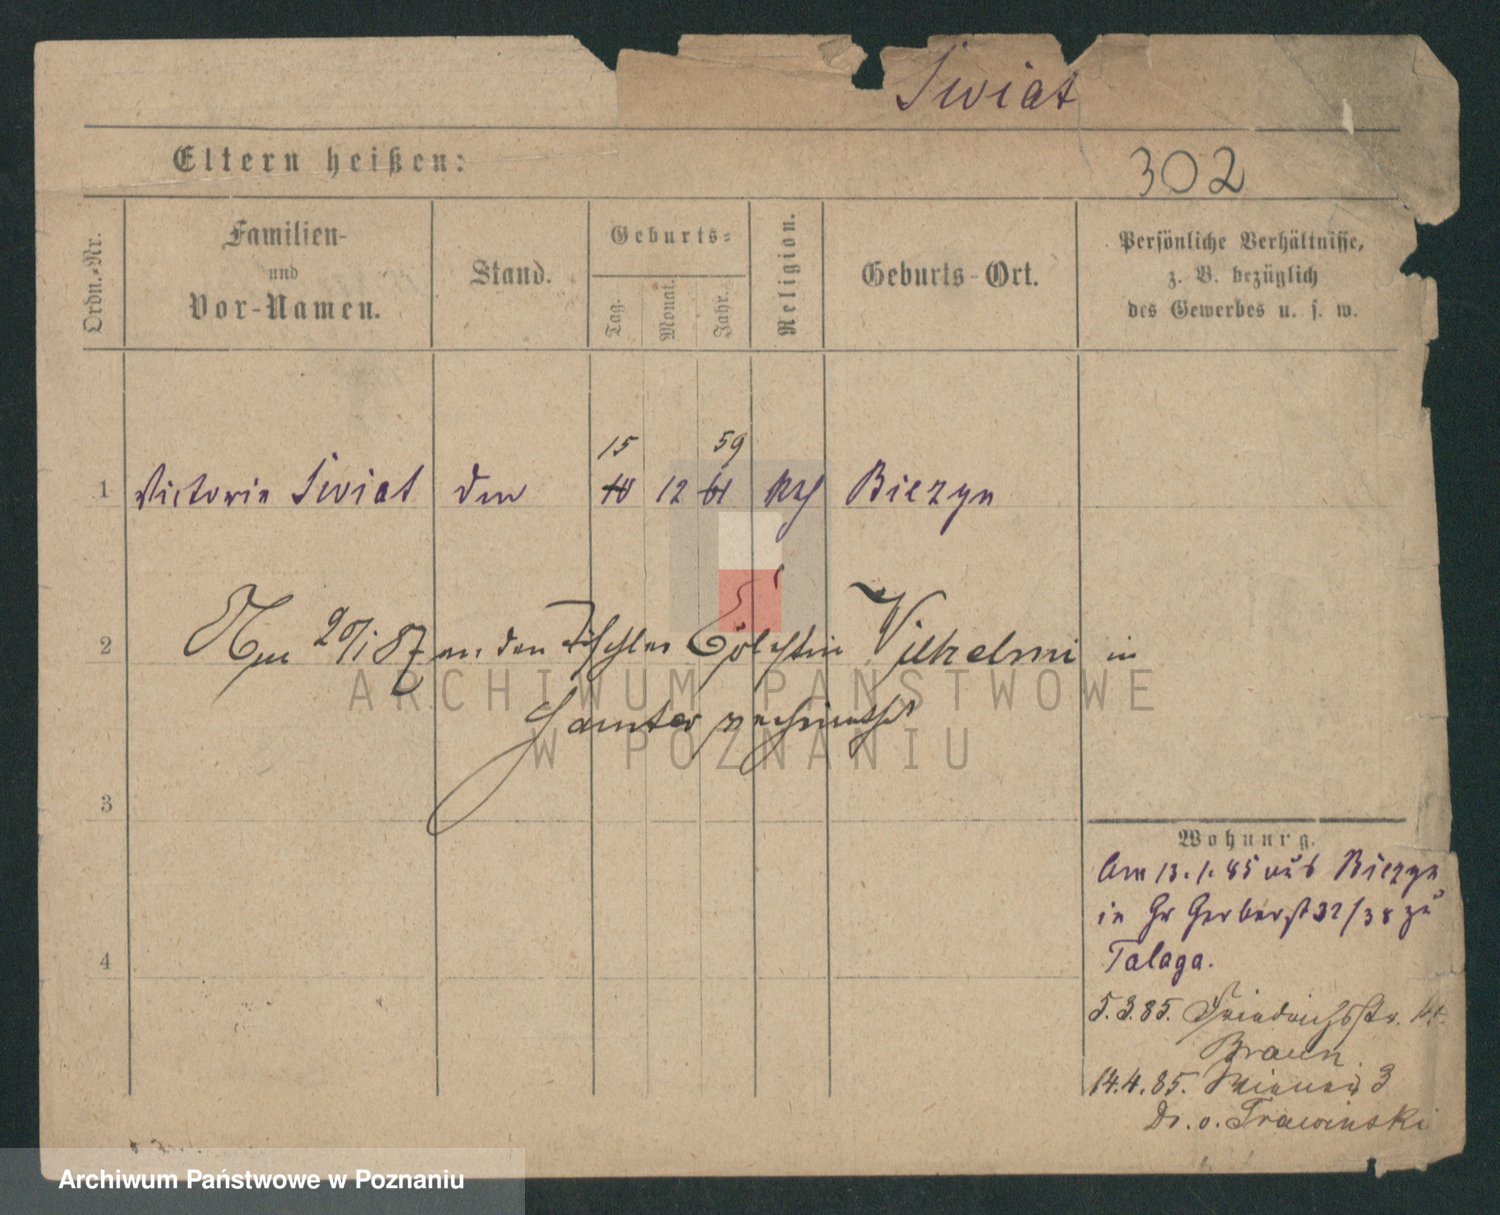 Swiat
302
Eltern heißen:
Ordn.-Nr.
Familien-
und
Vor-Namen.
Stand.
Geburts-
Tag.
Monat.
Jahr.
Religion.
Geburts-Ort.
Persönliche Verhältnisse,
z. B. bezüglich
des Gewerbes u. s. w.
15 59
1 Victoria Swiat 10 12 61 kth Biezyn
2 20/1 87 an den Tischler Cölestin Wilhelmi in
Samter verheirathet
3
4
Wohnung.
Am 13.1.85 aus Biezyn
in Gr Gerberst 32/38 zu
Talaga.
5.3.85. Friedrichsstr.
Braun
14.4.85. 3
Dr. v. Trawinski
ARCHIWUM PAŃSTWOWE
W POZNANIU
Archiwum Państwowe w Poznaniu